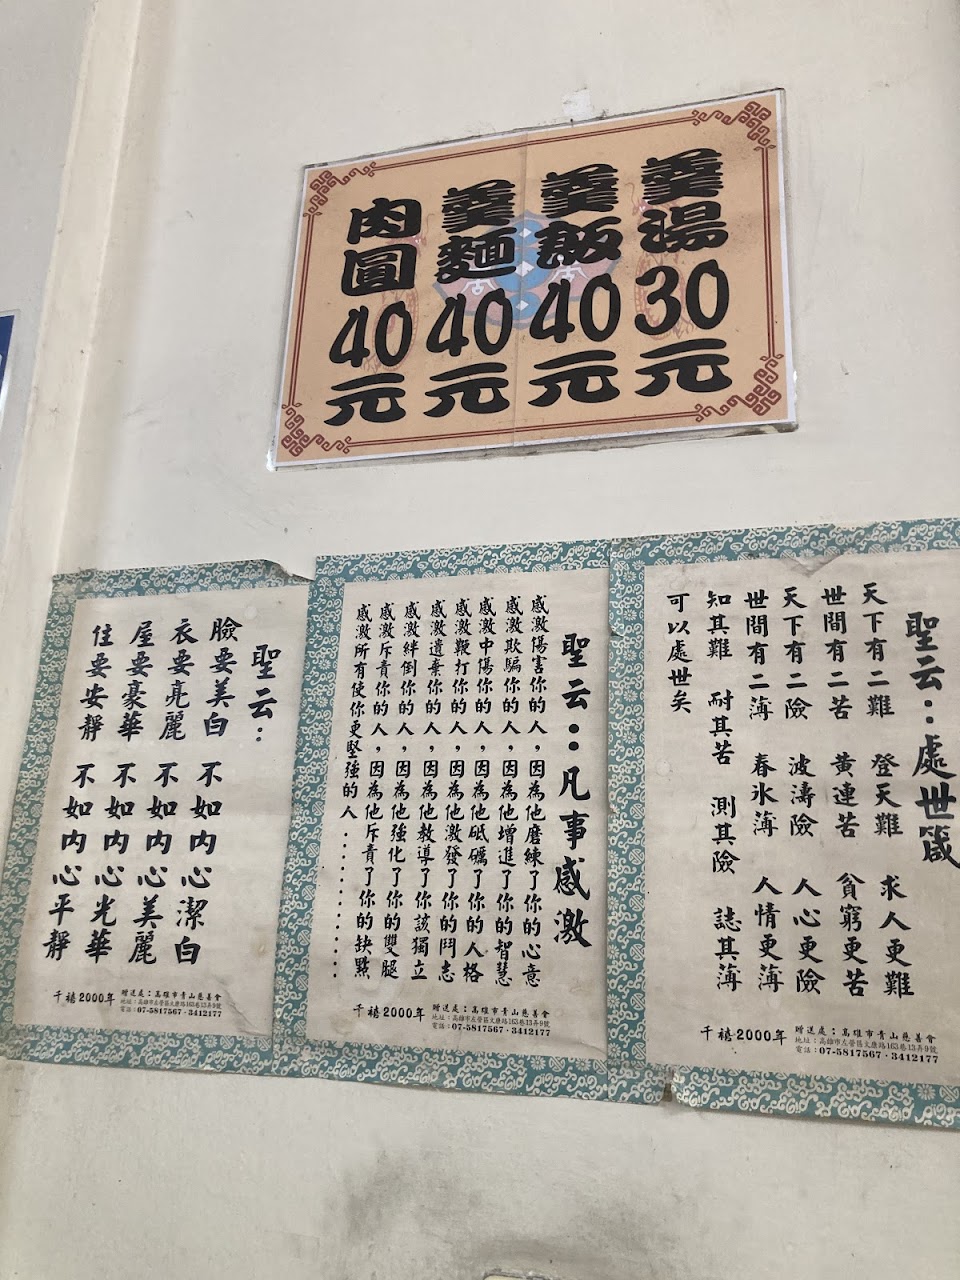 羹湯30元
羹飯40元
羹麵40元
肉圓40元
聖云:處世箴
天下有二難 登天難 求人更難
世間有二苦 黃連苦 貧窮更苦
天下有二險 波濤險 人心更險
世間有二薄 春氷薄 人情更薄
知其難 耐其苦 測其險 誌其薄
可以處世矣
千禧2000年
贈送處:高雄市青山慈善會
地址:高雄市左營區文康路163巷13弄9號
電話:07-5817567·3412177
聖云:凡事感激
感激傷害你的人,因為他磨練了你的心意
感激欺騙你的人,因為他增進了你的智慧
感激中傷你的人,因為他砥礪了你的人格
感激鞭打你的人,因為他激發了你的鬥志
感激遺棄你的人,因為他教導了你該獨立
感激絆倒你的人,因為他強化了你的雙腿
感激斥責你的人,因為他斥責了你的缺點
感激所有使你更堅強的人............
千禧2000年
贈送處:高雄市青山慈善會
地址:高雄市左營區文康路163巷13弄9號
電話:07-5817567·3412177
聖云:
臉要美白 不如內心潔白
衣要亮麗 不如內心美麗
屋要豪華 不如內心光華
住要安靜 不如內心平靜
千禧2000年
贈送處:高雄市青山慈善會
地址:高雄市左營區文康路163巷13弄9號
電話:07-5817567·3412177